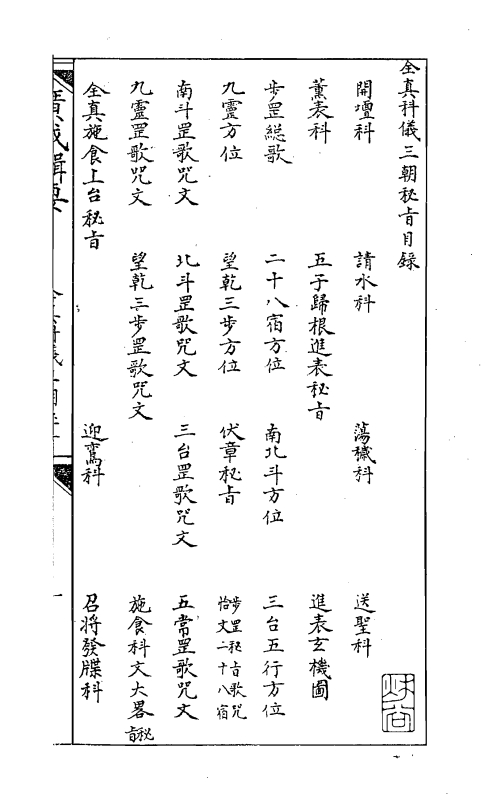 全真科儀三朝秘旨目錄
開壇科 請水科 蕩穢科 送聖科
薰表科 五子歸根進表秘旨 進表玄機圖
步罡総歌 二十八宿方位 南北斗方位 三台五行方位
九靈方位 望乾三步方位 伏章秘旨 步罡秘旨歌咒恰文二十八宿
南斗罡歌咒文 北斗罡歌咒文 三台罡歌咒文 五常罡歌咒文
九靈罡歌咒文 望乾三步罡歌咒文 施食科文大畧秘旨
全真施食上台秘旨 迎鸞科 召将發牒科
廣成輯要
一